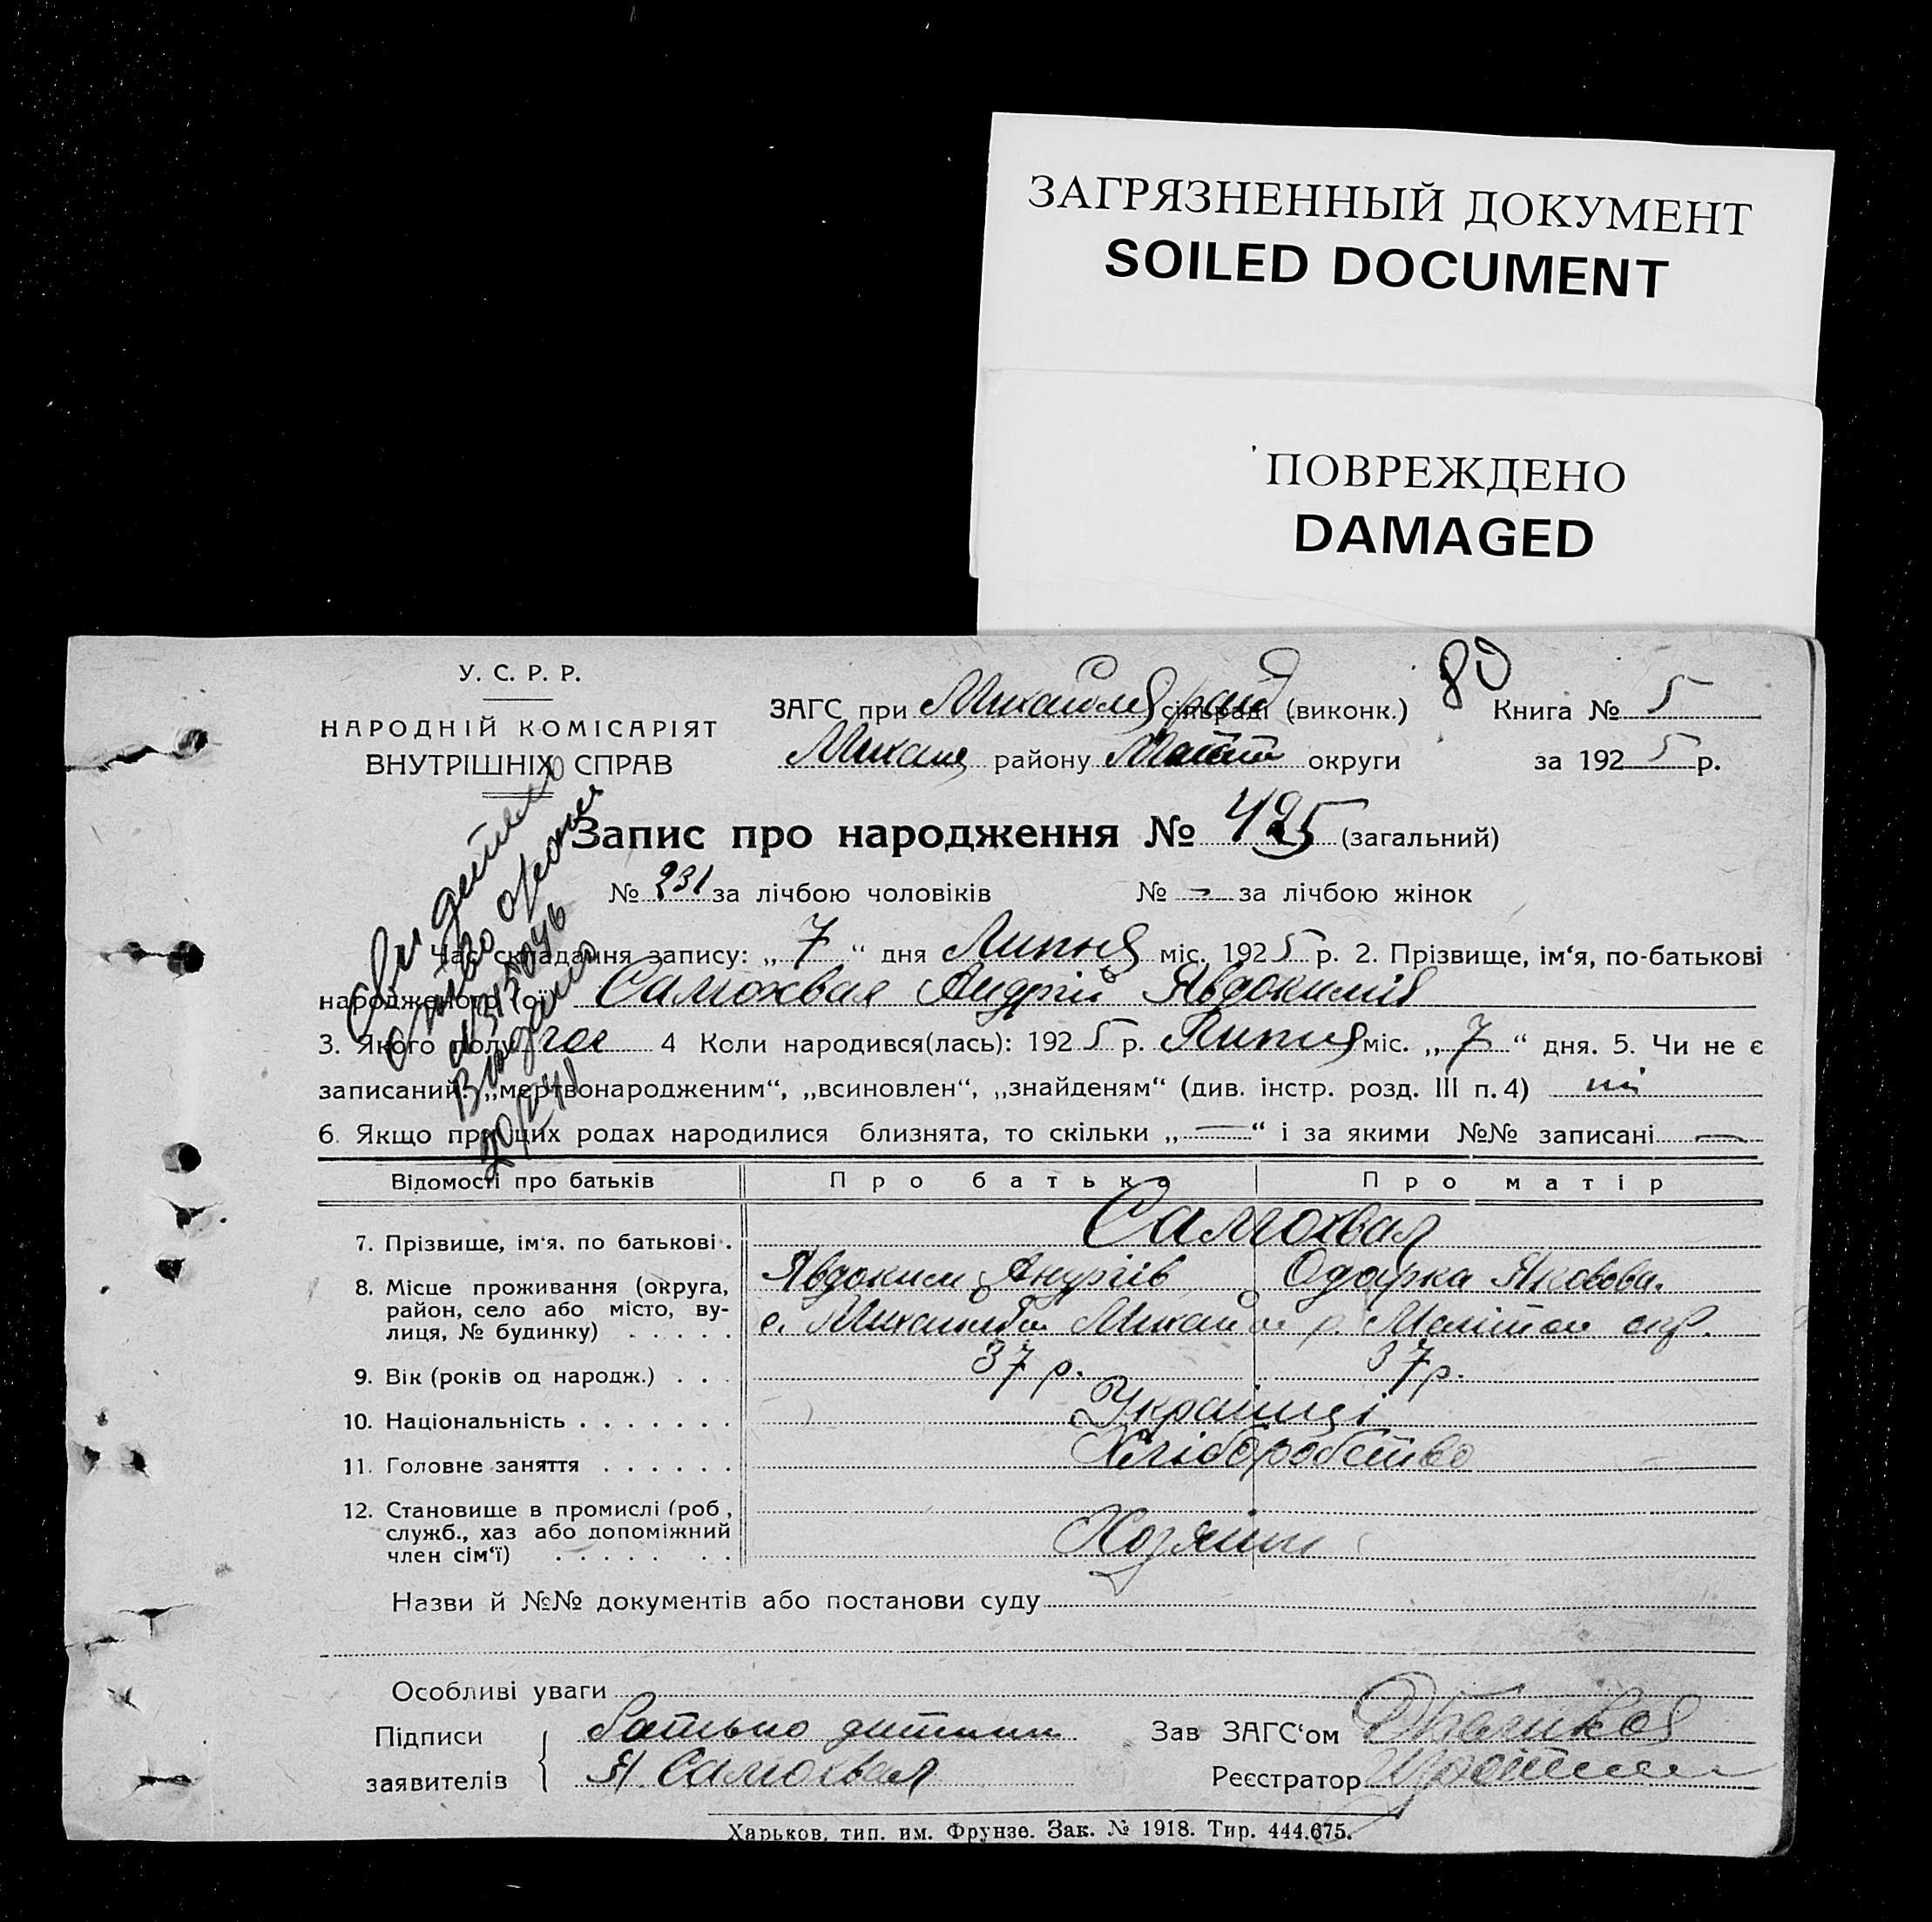 ЗАГРЯЗНЕННЫЙ ДОКУМЕНТ
SOILED DOCUMENT
ПОВРЕЖДЕНО
DAMAGED
80
У. С. Р. Р.
НАРОДНІЙ КОМІСАРІЯТ
ВНУТРІШНІХ СПРАВ
ЗАГС при сільраді (виконк.) Книга № 5
району округи за 1925 р.
Запис про народження № 425 (загальний)
№ 231 за лічбою чоловіків № - за лічбою жінок
Час складання запису: „7“ дня Липня міс. 1925 р. 2. Прізвище, ім‘я, по-батькові
народженого (ої) Самохвал Андрій Явдокимів
3. Якого полу чол 4 Коли народився(лась): 1925 р. Липня міс. „7“ дня. 5. Чи не є
записаний: „мертвонародженим“, „всиновлен“, „знайденям“ (див. інстр. розд. III п. 4) ні
6. Якщо при цих родах народилися близнята, то скільки „—“ і за якими №№ записані —
Відомості про батьків Про батька Про матір
7. Прізвище, ім‘я, по батькові . Самохвал
Явдоким Андріїв Одарка Яковова.
8. Місце проживання (округа,
район, село або місто, ву-
лиця, № будинку) . . . . .
9. Вік (років од народж.) . . . 37 р. 37 р.
10. Національність . . . . . . . Українці
11. Головне заняття . . . . . . Хліборобство
12. Становище в промислі (роб.,
служб., хаз або допоміжний
член сім‘ї) . . . . . . . Хозяіни
Назви й №№ документів або постанови суду
Особливі уваги
Підписи заявителів
Батько дитини
Я. Самохвал
Зав ЗАГС‘ом
Реєстратор
Харьков, тип. им. Фрунзе. Зак. № 1918. Тир. 444.675.